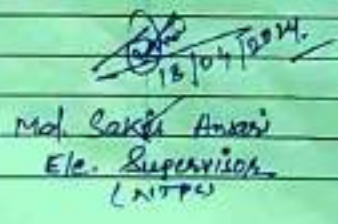 18/04/2024.
Md. Sakir Ansari
Ele. Supervisor
(NTPC)